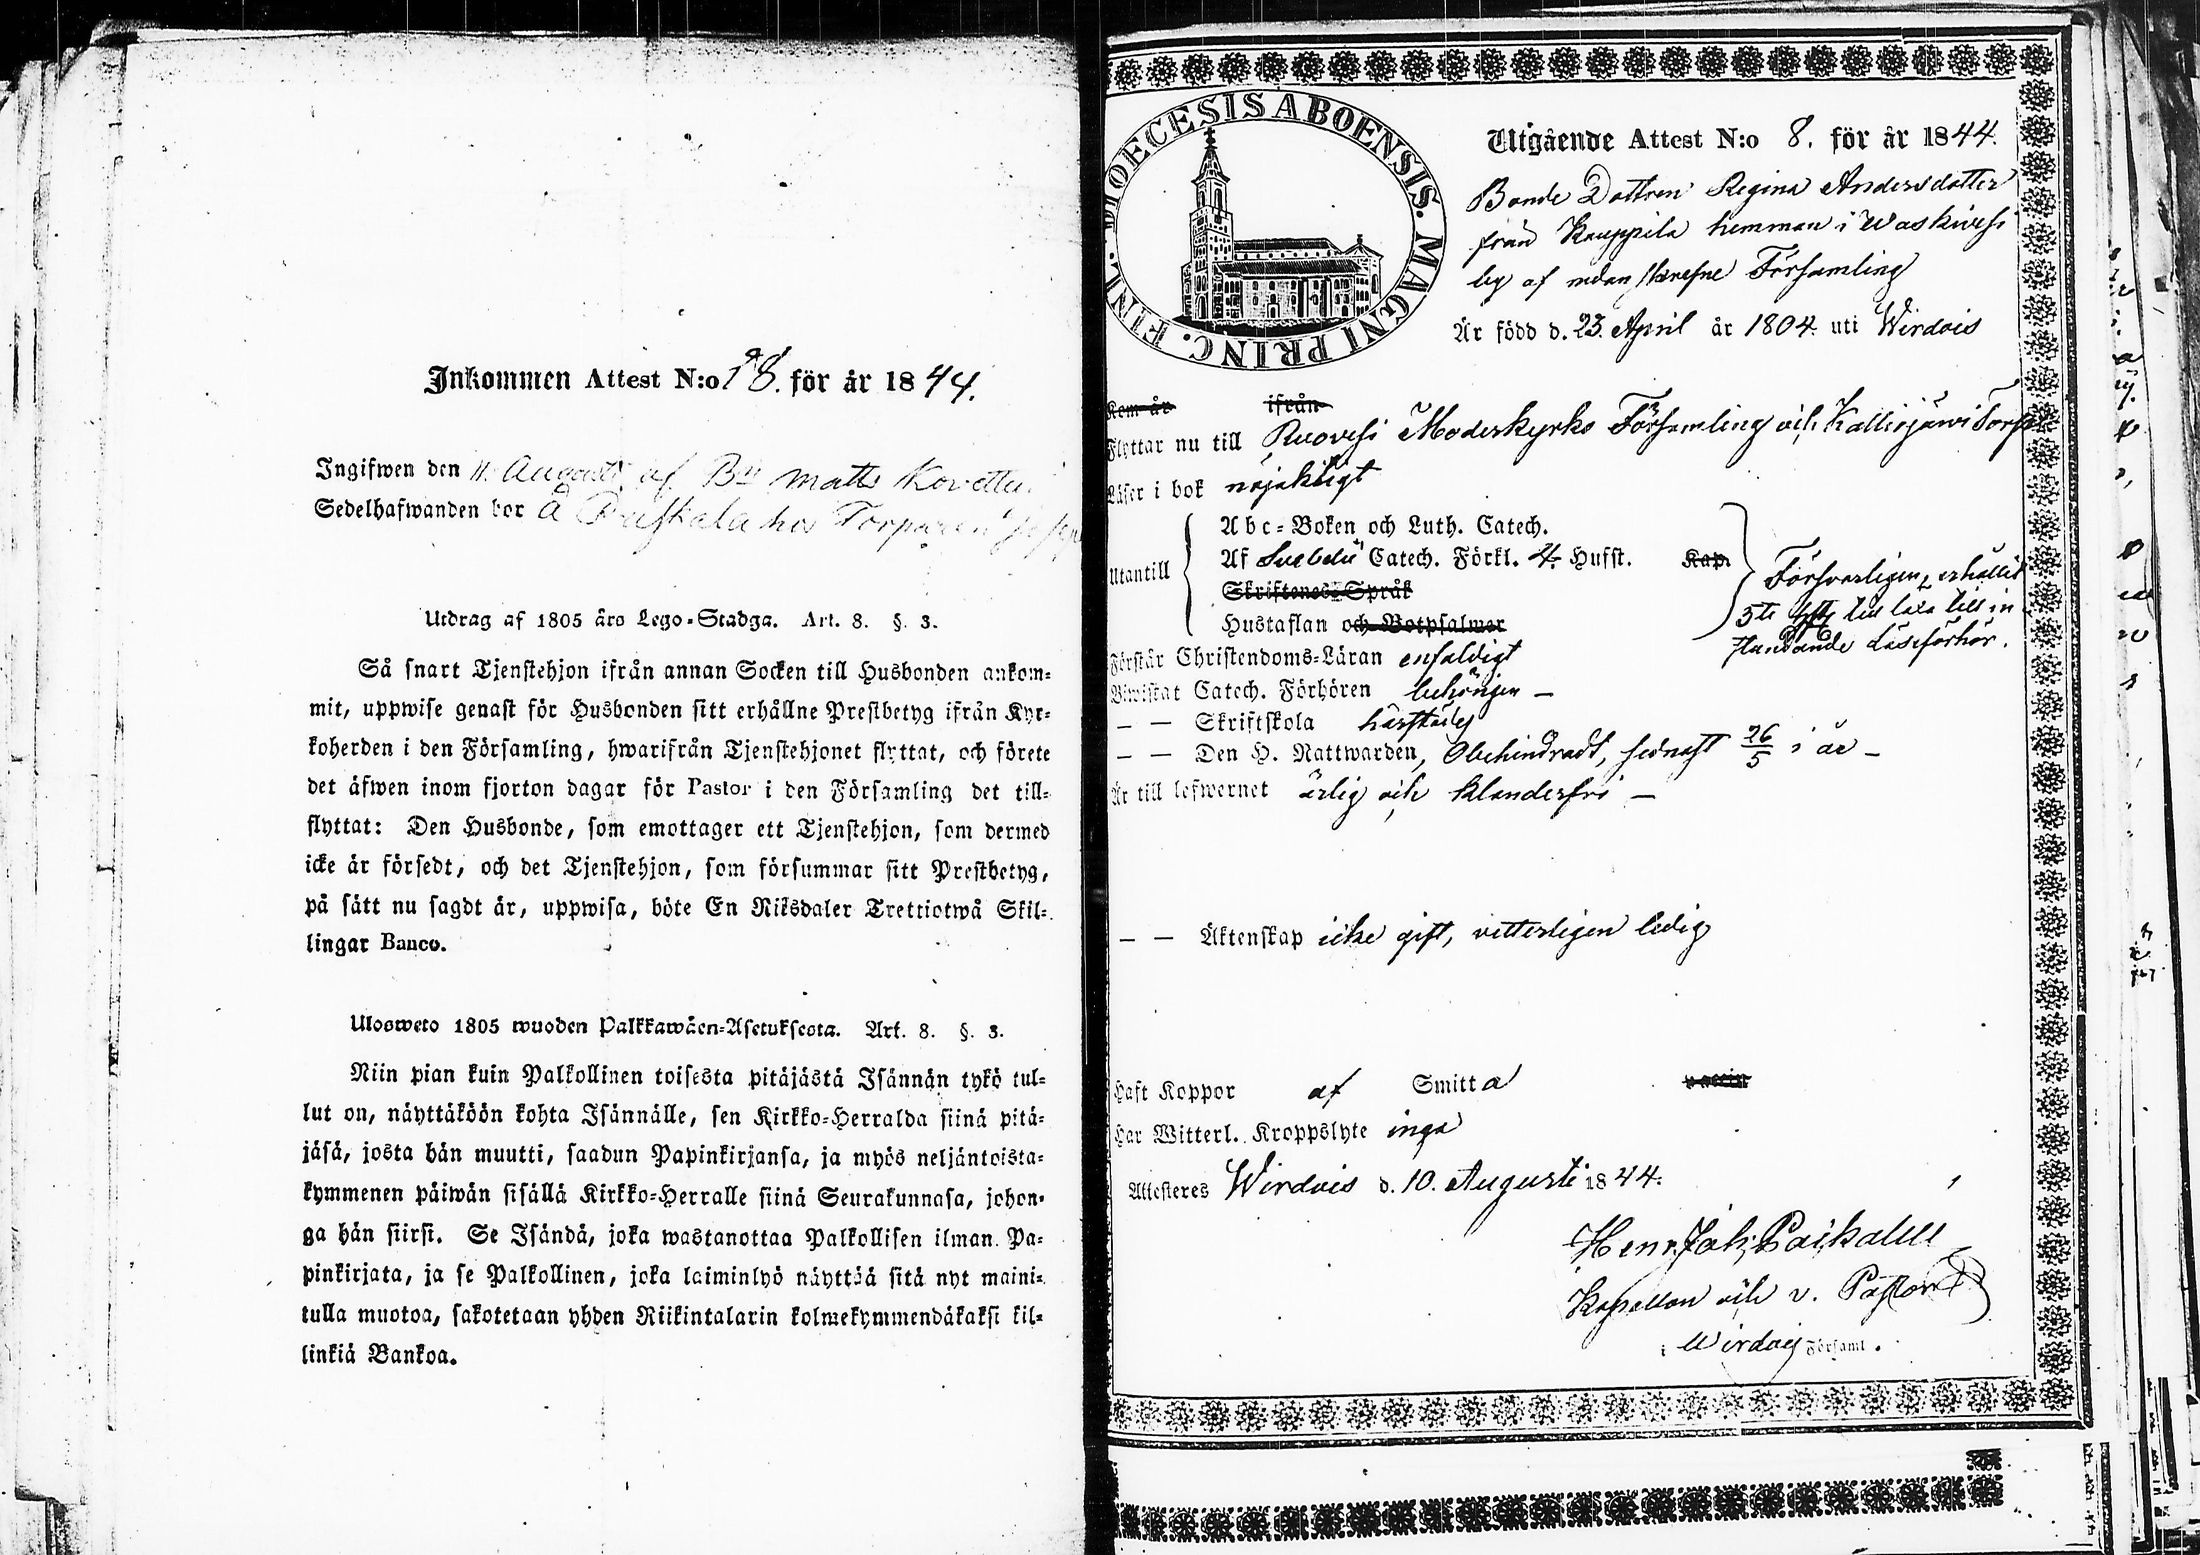 Inkommen Attest N:o 18. för år 1844.
Ingifwen den 11 Augusti af Bn Matts Kovettu
Sedelhafwanden bor Å Paskala hos Torparen
Utdrag af 1805 års Lego-Stadga. Art. 8. §. 3.
Så snart Tjenstehjon ifrån annan Socken till Husbonden ankom-
mit, uppwise genast för Husbonden sitt erhållne Prestbetyg ifrån Kyr-
koherden i den Församling, hwarifrån Tjenstehjonet flyttat, och förete
det äfwen inom fjorton dagar för Pastor i den Församling det till-
flyttat: Den Husbonde, som emottager ett Tjenstehjon, som dermed
icke är försedt, och det Tjenstehjon, som försummar sitt Prestbetyg,
på sätt nu sagdt är, uppwisa, böte En Riksdaler Trettiotwå Skil-
lingar Banco.
Ulosweto 1805 wuoden Palkkawäen-Asetuksesta. Art. 8. §. 3.
Niin pian kuin Palkollinen toisesta pitäjästä Isännän tykö tul-
lut on, näyttäköön kohta Isännälle, sen Kirkko-Herralda siinä pitä-
jäsä, josta hän muutti, saadun Papinkirjansa, ja myös neljäntoista-
kymmenen päiwän sisällä Kirkko-Herralle siinä Seurakunnasa, johon-
ga hän siirsi. Se Isändä, joka wastanottaa Palkollisen ilman Pa-
pinkirjata, ja se Palkollinen, joka laiminlyö näyttää sitä nyt maini-
tulla muotoa, sakotetaan yhden Riikintalarin kolmekymmendäkaksi kil-
linkiä Bankoa.
DIOECESIS ABOENSIS. MAGNI PRINC. FINL.
Utgående Attest N:o 8. för år 1844.
Bonde Dottren Regina Andersdotter
från Kauppila hemman i Waskivesi
by af nedanskrefne Församling
Är född d. 23. April år 1804. uti Wirdois
Kom år ifrån
Flyttar nu till Ruovesi Moderkyrko Församling och Kallisjärvi Torp
Läser i bok nöjaktigt
Utantill
Abc-Boken och Luth. Catech.
Af Svebelii Catech. Förkl. 4. Hufst. Kap.
Skriftenes Språk
Hustaflan och Botpsalmer
Försvarligen, erhållit
stundande Läseförhör.
Förstår Christendoms-Läran enfaldigt
Biwistat Catech. Förhören behörigen —
— — Skriftskola härstädes
— — Den H. Nattwarden, Obehindradt, sednast 26/5 i år —
Är till lefwernet ärlig och klanderfri —
— — Äktenskap icke gift, vitterligen ledig
Haft Koppor af Smitta vaccin
Har Witterl. Kroppslyte inga
Attesteres Wirdois d. 10. Augusti 1844.
Henr. Joh:
Kapellan och v. Pastor
i Wirdois Församl.